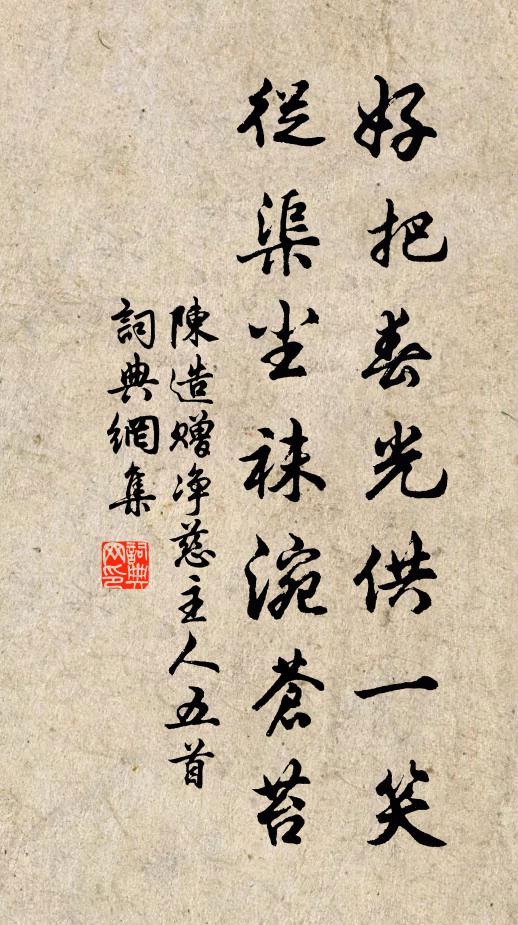 好把春光供一笑
從渠尘袜涴蒼苔
陳造贈净慈主人五首
詞典網集
詞典网印